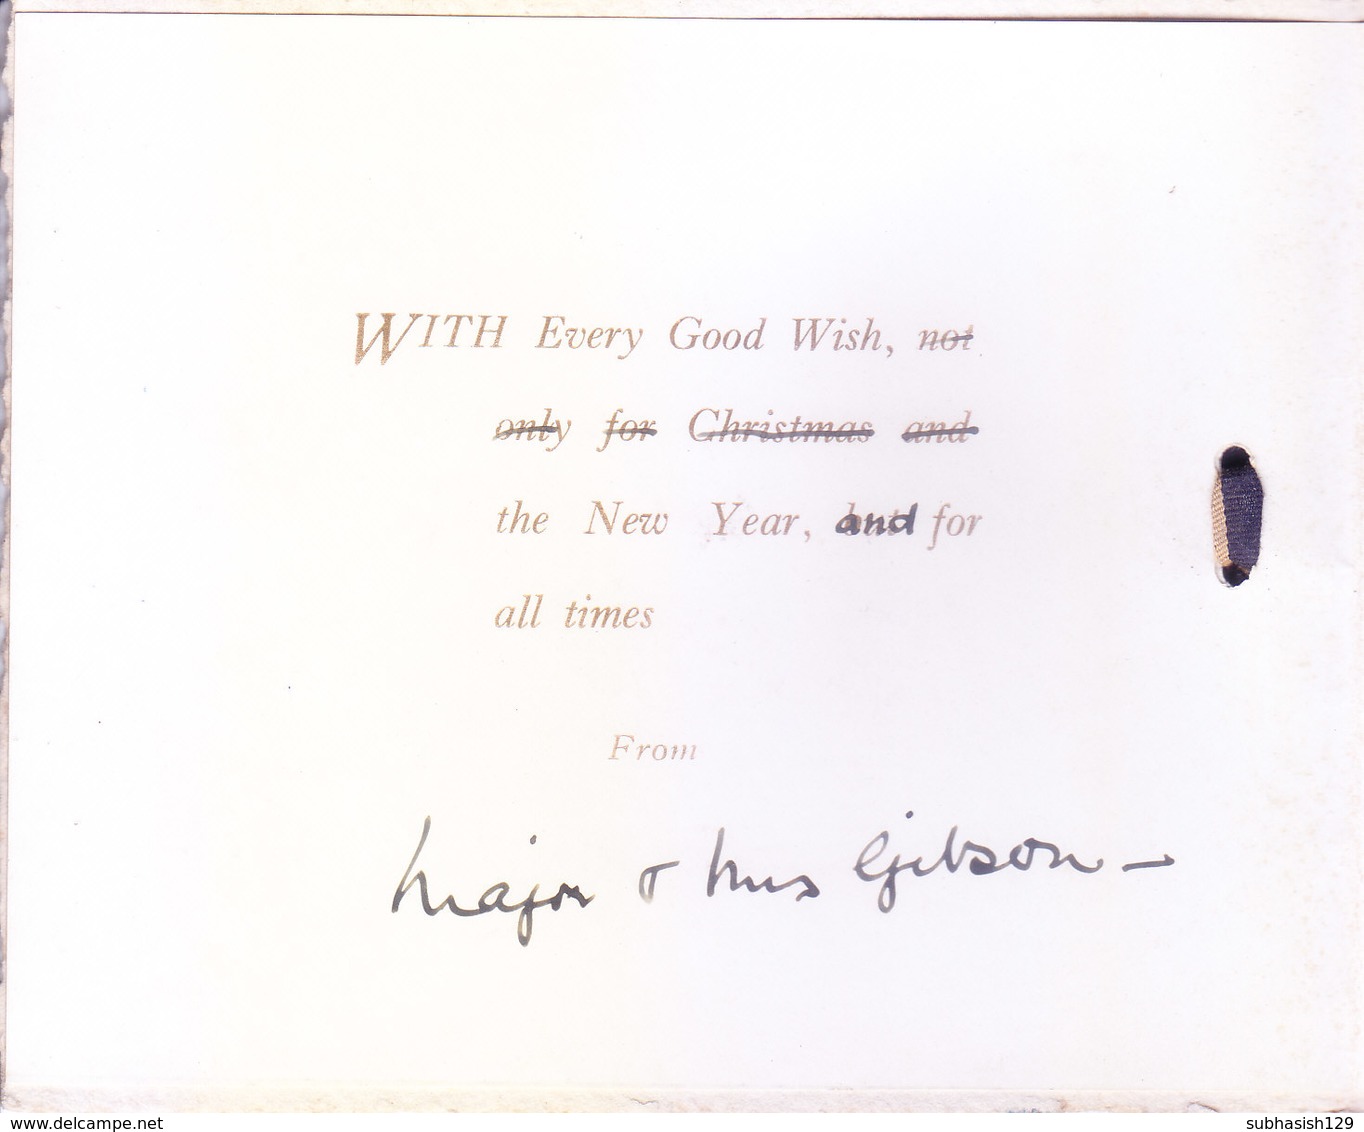 WITH Every Good Wish, not
only for Christmas and
the New Year, and for
all times
From
Major & Mrs Gibson —
www.delcampe.net
subhasish129